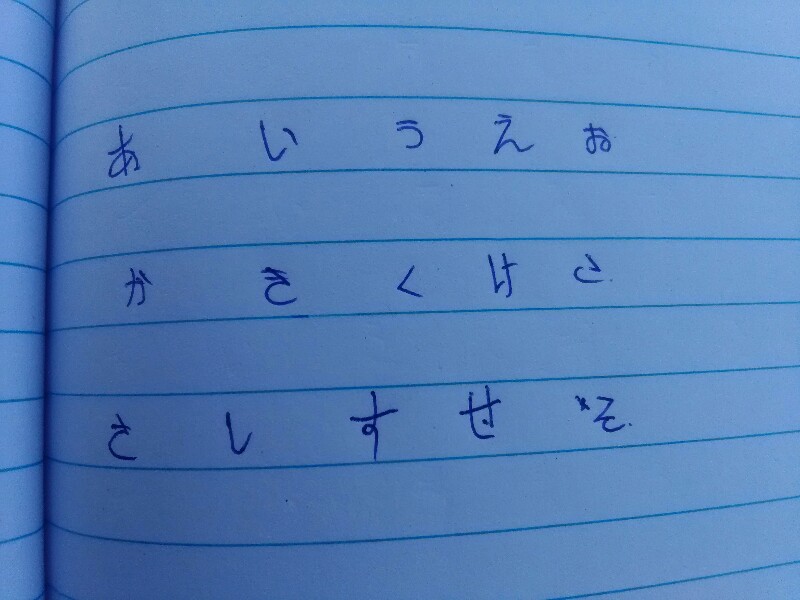 あ い う え お
か き く け こ
さ し す せ そ